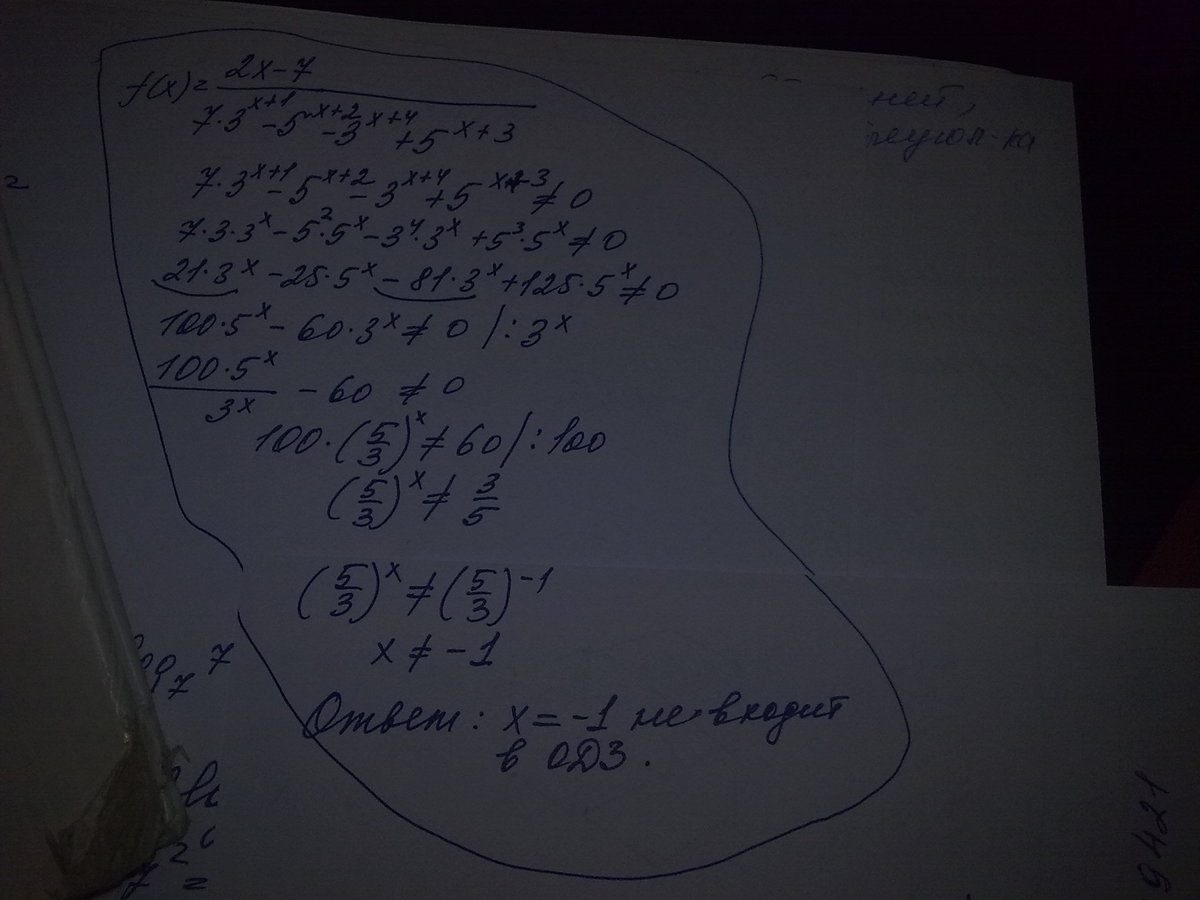 f(x)= (2x-7)/(7·3^(x+1) - 5^(x+2) - 3^(x+4) + 5^(x+3))
7·3^(x+1) - 5^(x+2) - 3^(x+4) + 5^(x+3) ≠ 0
7·3·3^x - 5^2·5^x - 3^4·3^x + 5^3·5^x ≠ 0
21·3^x - 25·5^x - 81·3^x + 125·5^x ≠ 0
100·5^x - 60·3^x ≠ 0 |:3^x
(100·5^x)/(3^x) - 60 ≠ 0
100·(5/3)^x ≠ 60 |:100
(5/3)^x ≠ 3/5
(5/3)^x ≠ (5/3)^-1
x ≠ -1
Ответ: x = -1 не входит
в ОДЗ.
=
7
7
9421